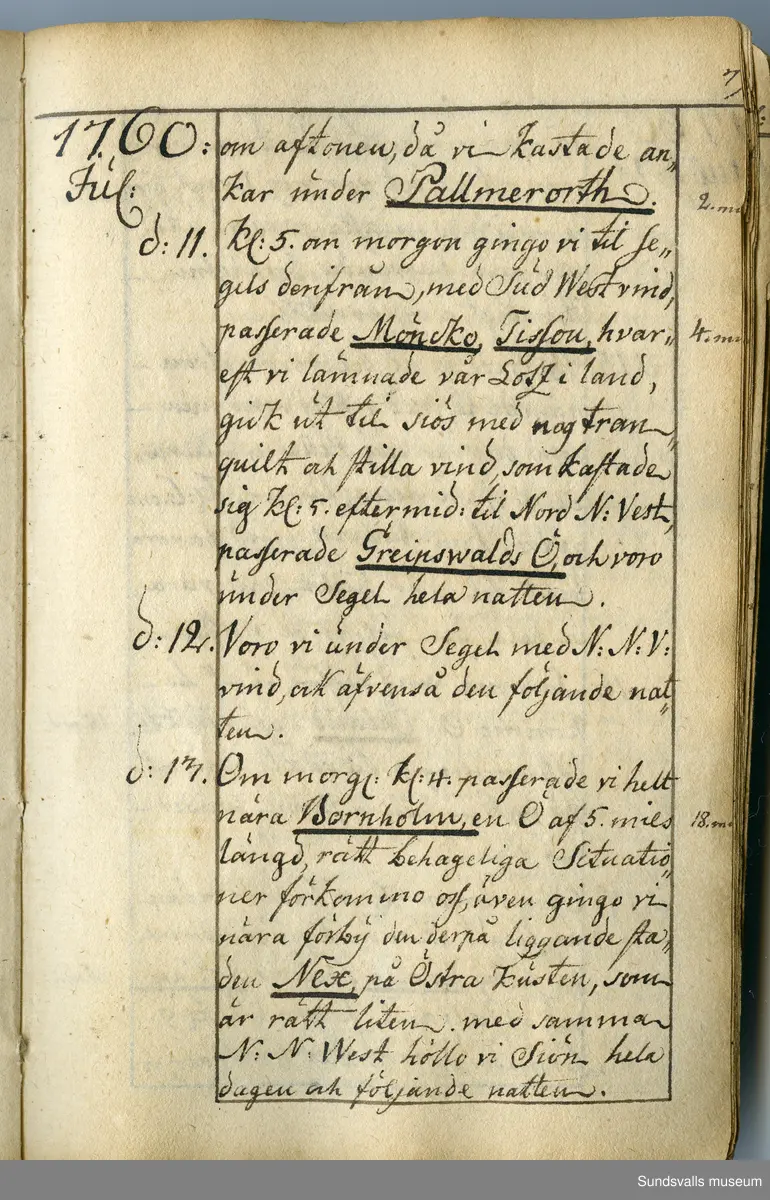 7
1760: om aftonen, då vi kastade an„
Jül: kar ünder Pallmerorth. 2. m
d: 11. Kl: 5. om morgon gingo vi til se„
gels derifrån, med Süd West vind,
passerade Möncko, Tissou, hvar„ 4. m
eft vi lämnade vår Lots i land,
gick üt til siös med nog tran„
quilt och stilla vind, som kastade
sig Kl: 5. eftermid: til Nord N: Vest,
passerade Greipswalds Ö, och voro
ünder Segel hela natten.
d: 12. Voro vi ünder Segel med N: N: V:
vind, ock äfvenså den följande nat„
ten.
d: 13. Om morg: Kl: 4. passerade vi helt
nära Bornholm, en Ö af 5. mils 18. m
längd, rätt behageliga Situatio„
ner förkommo oss, även gingo vi
nära förbÿ den derpå liggande sta„
den Nex, på Östra Küsten, som
är rätt liten. med samma
N: N: West höllo vi Siön hela
dagen och följande natten.
Sundsvalls museum